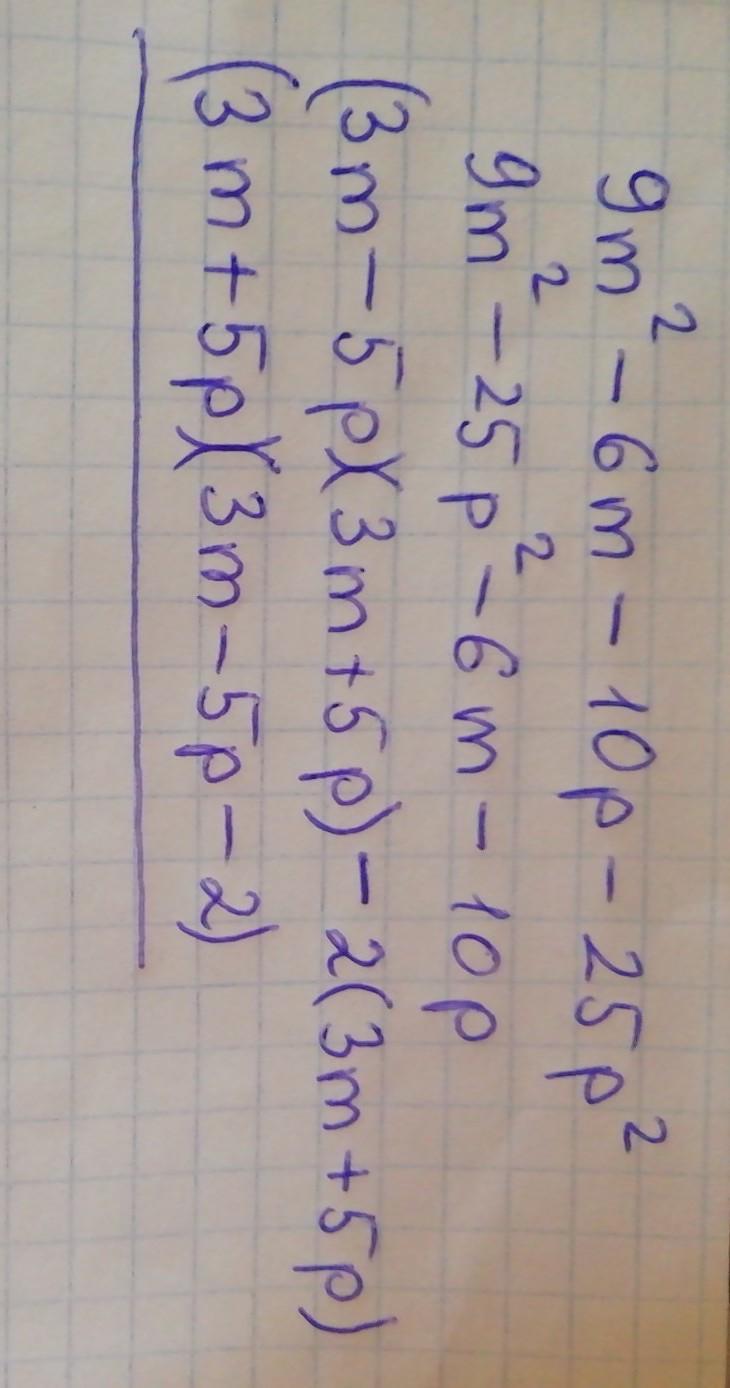 9m² - 6m - 10p - 25p²
9m² - 25p² - 6m - 10p
(3m - 5p)(3m + 5p) - 2(3m + 5p)
(3m + 5p)(3m - 5p - 2)